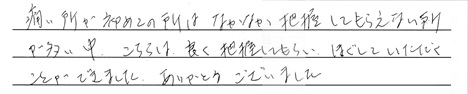 痛い所が初めての所は なかなか把握してもらえない所
が多い中、こちらは、良く把握してもらい、ほぐしていただく
ことができました。ありがとうございました